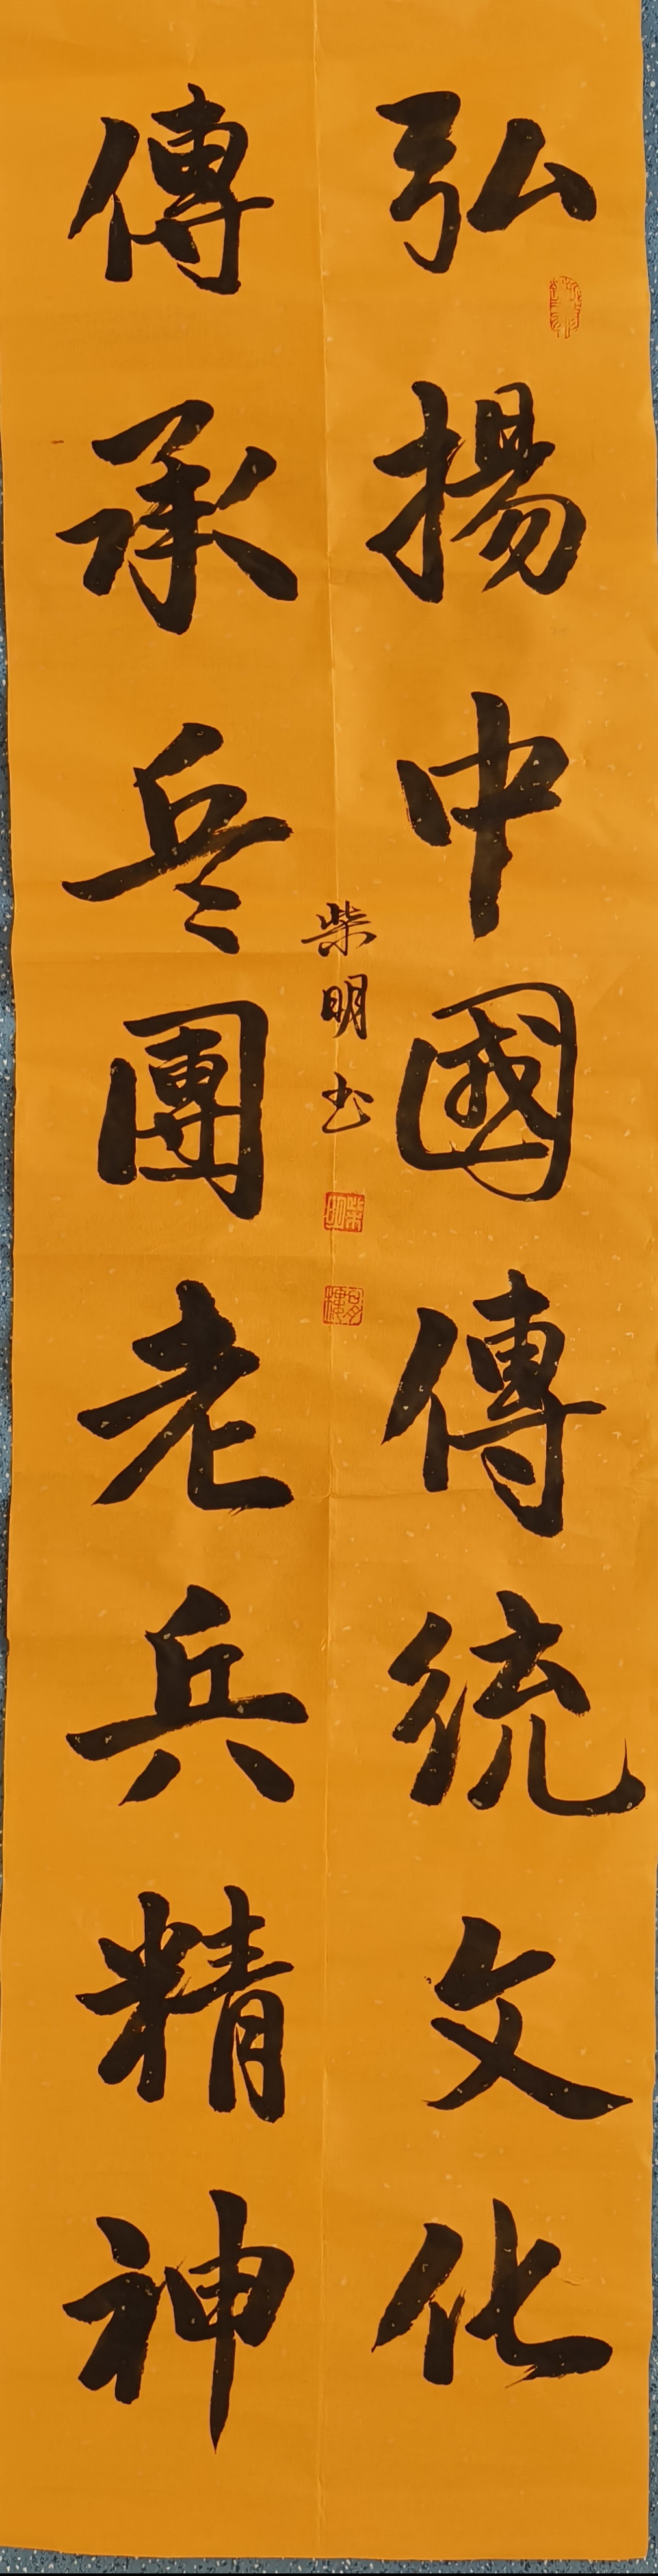 弘揚中國傳統文化
傳承兵團老兵精神
柴明书
柴明